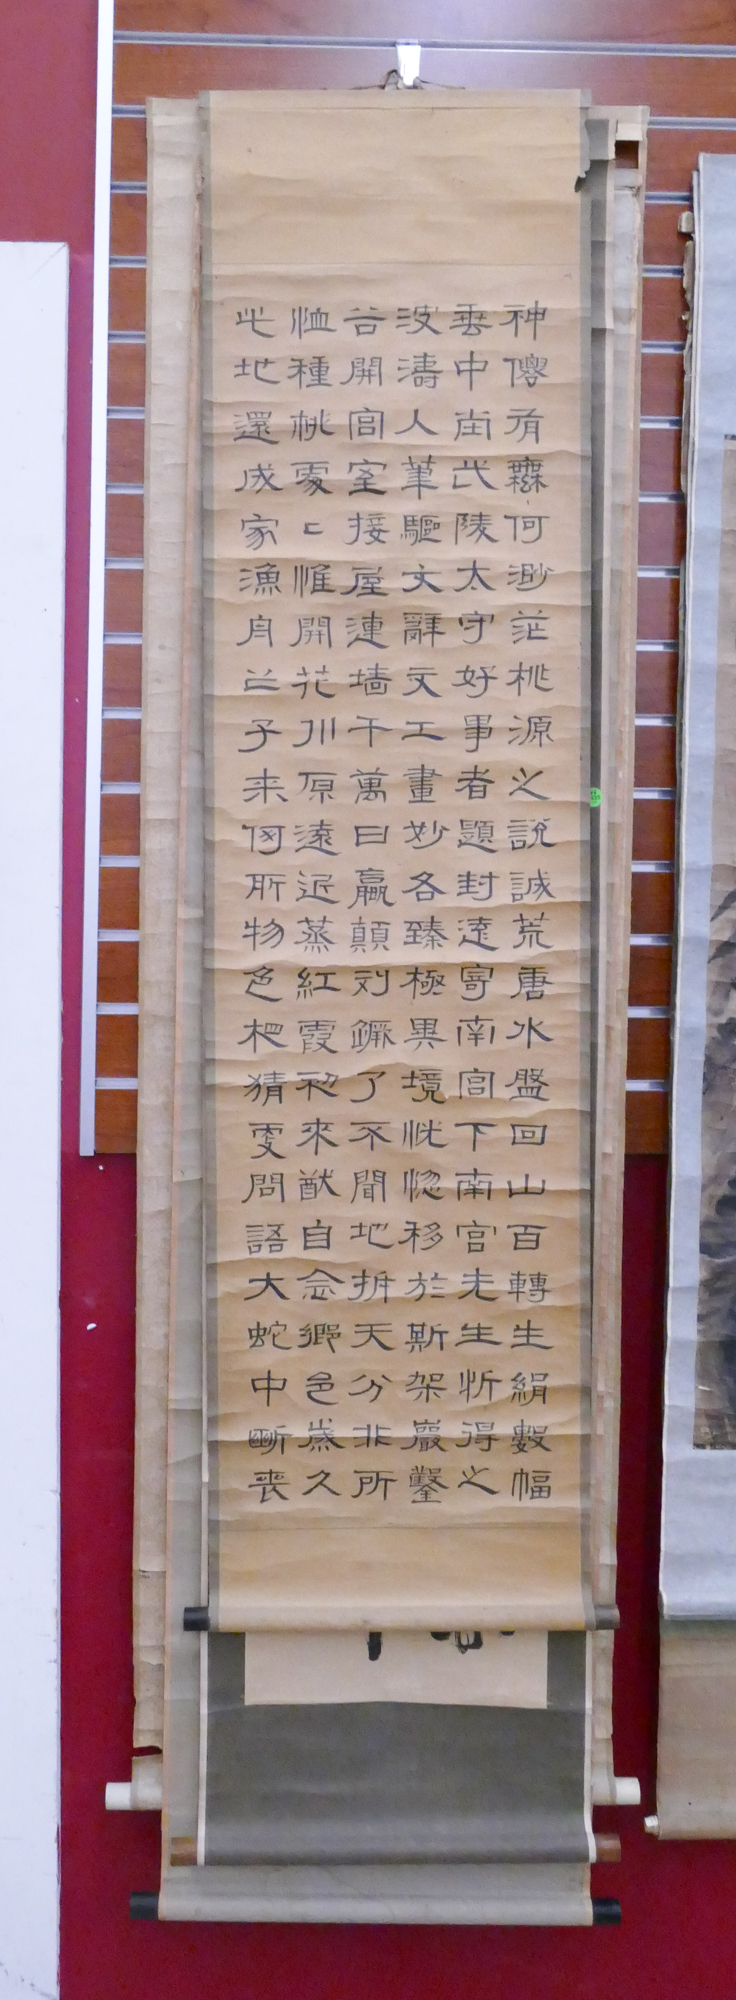 神僊有無何渺茫桃源之說誠荒唐水盤回山百轉生絹數幅
垂中堂武陵太守好事者題封遠寄南宮下南宮先生忻得之
波濤入筆驅文辭文工畫妙各臻極異境恍惚移於斯架巖鑿
谷開宮室接屋連墻千萬日嬴顛刘蹶了不聞地拆天分非所
恤種桃處〻惟開花川原遠近蒸紅霞初來猷自念鄉邑歲久
此地還成家漁舟之子来何所物色相猜更問語大蛇中斷喪